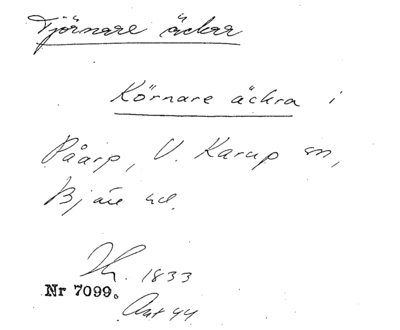 Tjörnare äckrar
Körnare äckra i
Påarp, V. Karup sn,
Bjäre hd.
Sk. 1833
Nr 7099.
Akt 44